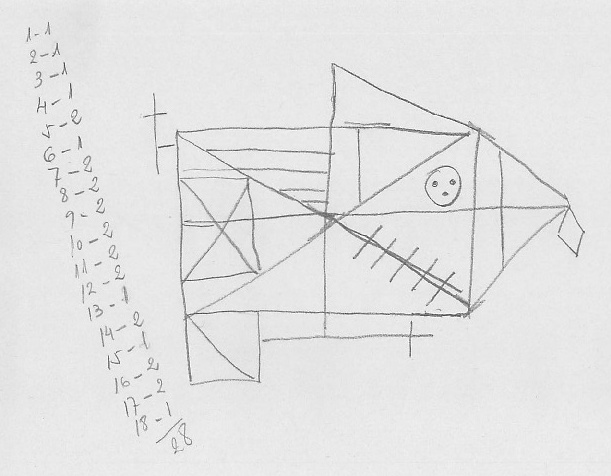 1-1
2-1
3-1
4-1
5-2
6-1
7-2
8-2
9-2
10-2
11-2
12-2
13-1
14-2
15-1
16-2
17-2
18-1
28